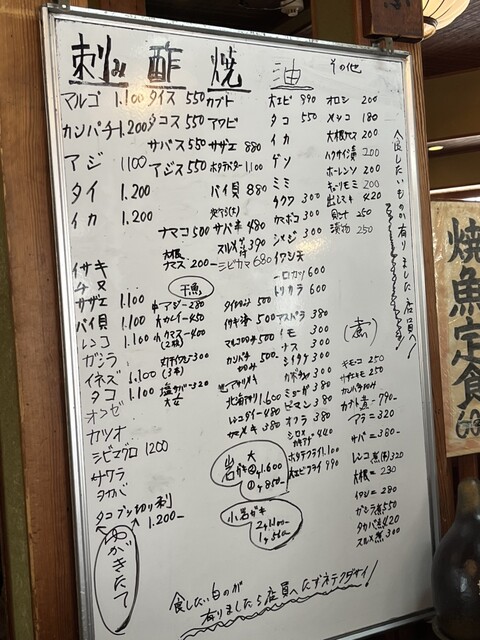 刺み
マルゴ 1.100
カンパチ 1.200
アジ 1100
タイ 1.200
イカ 1.200
イサキ
チヌ
サザエ 1.100
バイ貝 1.100
レンコ 1.100
ガシラ
イネズ 1.100
タコ 1.100
オコゼ
カツオ
シビマグロ 1200
サワラ
タカバ
タコブツ切り刺
1.200-
ゆがきたて
酢
タイス 550
タコス 550
サバス 550
アジス 550
ナマコ 500
大根
ナマス 200-
焼
カブト
アワビ
サザエ 880
ホタテバター 1.100
バイ貝 880
サバキ 480
スルメ 390
シビカマ 680
干魚
中アジー280
大カレイー450
小カマスー400
(2枚)
(3本)
塩サバー320
イサキ漬 500
カンパチ 500-
切み
北海アサリ 1.600
レンコダイー480
カマメキ 380
岩ガキ
大
②ヶ1.600
①ヶ850-
小岩ガキ
2ヶ1100-
油
大エビ 990
タコ 550
イカ
ゲソ
ミミ
チクワ 300
カマボコ 300
シメジ 300
イワシ天
一口カツ 600
トリカラ 600
アスペラ 380
イモ 300
ナス 300
シイタケ 300
カボチャ 300
ミョーガ 380
ピマン 380
オクラ 380
シロメ 440
ホタテフライ 1.100
大エビフライ 990
その他
オロシ 200
メッコ 180
大根ナマス 200
ハクサイ漬 200
ホーレンソ 200
キューリモミ 200
出しマキ 420
250
漬物 250
(煮)
キモコ 250
サザエモ 250
カブト煮-790-
アラ=320
サバ=380-
レンコ煮(半)320
大根=230
イワシ=280
ガシラ煮550
タカバ煮420
スルメ煮300
食したいものが有りました店員へ
食したいものが
有りましたら店員へたずネテクダサイ!
焼魚定食